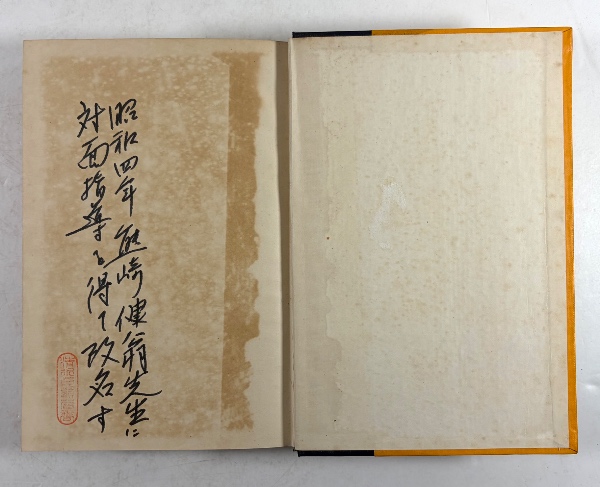 昭和四年熊崎健翁先生に
対面指導を得て改名す